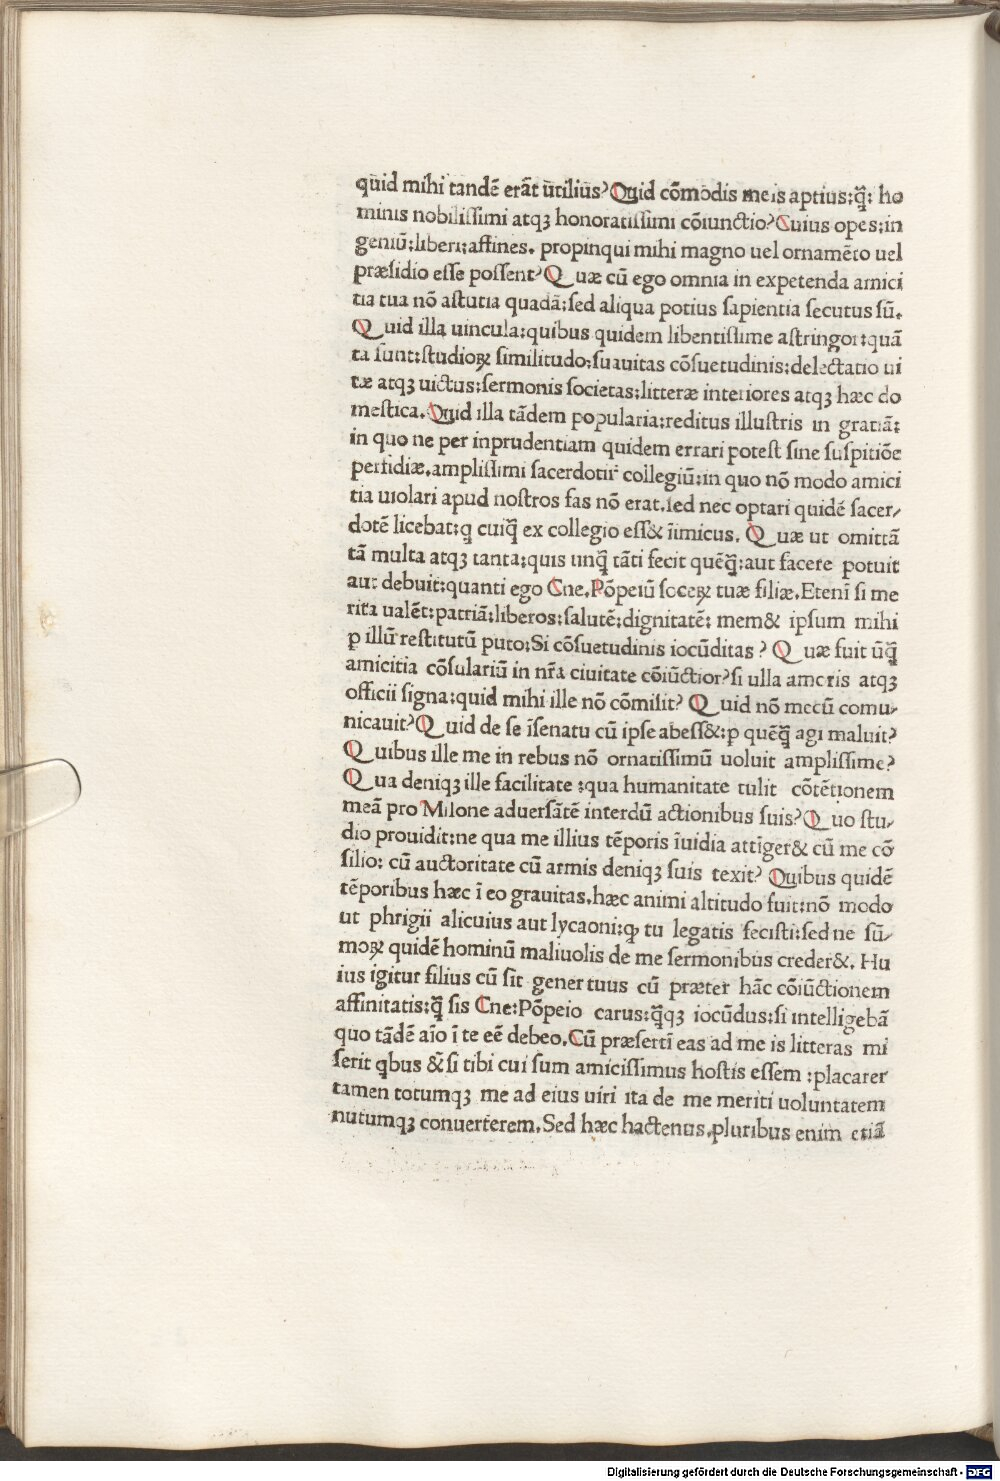 quid mihi tandē erāt utilius? Quid cōmodis meis aptius: q̄̃: ho
minis nobilissimi atqꝫ honoratissimi cōiunctio? Cuius opes: in
geniū: liberi: affines. propinqui mihi magno uel ornamēto uel
præsidio esse possent? Quæ cū ego omnia in expetenda amici
tia tua nō astutia quadā: sed aliqua potius sapientia secutus sū.
Quid illa uincula: quibus quidem libentissime astringor: quā
ta sunt: studioꝝ similitudo: suauitas cōsuetudinis: delectatio ui
tæ atqꝫ uictus: sermonis societas: litteræ interiores atqꝫ hæc do
mestica. Quid illa tādem popularia: reditus illustris in gratiā:
in quo ne per inprudentiam quidem errari potest sine suspitiōe
perfidiæ. amplissimi sacerdotir̄ collegiū: in quo nō modo amici
tia uiolari apud nostros fas nō erat. sed nec optari quidē sacer⸗
dotē licebat: q cuiq̄̃ ex collegio ess& īimicus. Quæ ut omittā
tā multa atqꝫ tanta: quis unq̄̃ tāti fecit quēq̄̃: aut facere potuit
aut debuit: quanti ego Cne. Pōpeiū soceꝝ tuæ filiæ. Etenī si me
rita ualēt: patriā: liberos: salutē: dignitatē: mem& ipsum mihi
p illū restitutū puto: Si cōsuetudinis iocūditas? Quæ fuit ūq̄̃
amicitia cōsulariū in nr̄a ciuitate cōiūctior? si ulla amoris atqꝫ
officii signa: quid mihi ille nō cōmisit? Quid nō mecū comu⸗
nicauit? Quid de se īsenatu cū ipse abess&: p quēq̄̃ agi maluit?
Quibus ille me in rebus nō ornatissimū uoluit amplissime?
Qua deniqꝫ ille facilitate: qua humanitate tulit cōtētionem
meā pro Milone aduersātē interdū actionibus suis? Quo stu⸗
dio prouidit: ne qua me illius tēporis īuidia attīger& cū me cō
silio: cū auctoritate cū armis deniqꝫ suis texit? Quibus quidē
tēporibus hæc ī eo grauitas. hæc animi altitudo fuit: nō modo
ut phrigii alicuius aut lycaoni: ꝙ tu legatis fecisti: sed ne sū⸗
moꝝ quidē hominū maliuolis de me sermonibus creder&. Hu
ius igitur filius cū sit gener tuus cū præter hāc cōiūctionem
affinitatis: q̄̃ sis Cne: Pōpeio carus: q̄̃qꝫ iocūdus: si intelligebā
quo tādē aīo ī te eē debeo. Cū præsertī eas ad me is litteras mi
serit qbus &̄si tibi cui sum amicissimus hostis essem: placarer
tamen totumqꝫ me ad eius uiri ita de me meriti uoluntatem
nutumqꝫ conuerterem. Sed hæc hactenus. pluribus enim etiā
Digitalisierung gefördert durch die Deutsche Forschungsgemeinschaft - DFG